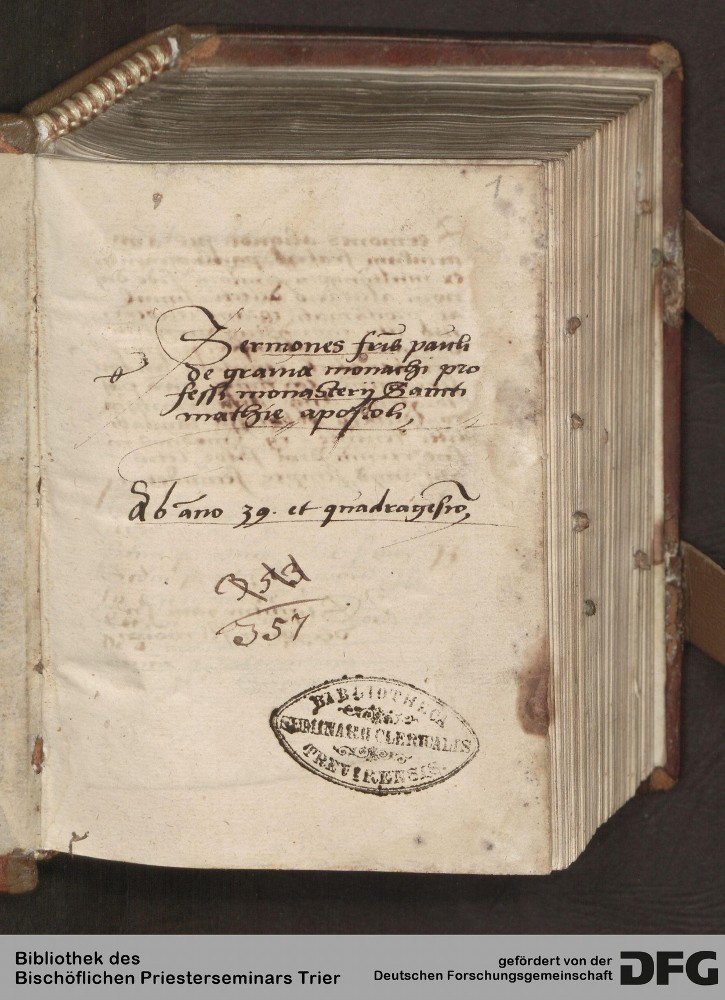 1
Sermones fr̄is pauli
de gramæ monachi pro
fessi monasterij Sancti
mathie apostoli,
Ab āno 39. et quadragesīo,
357
BIBLIOTHECA
SEMINARII CLERICALIS
TREVIRENSIS.
Bibliothek des
Bischöflichen Priesterseminars Trier
gefördert von der
Deutschen Forschungsgemeinschaft
DFG